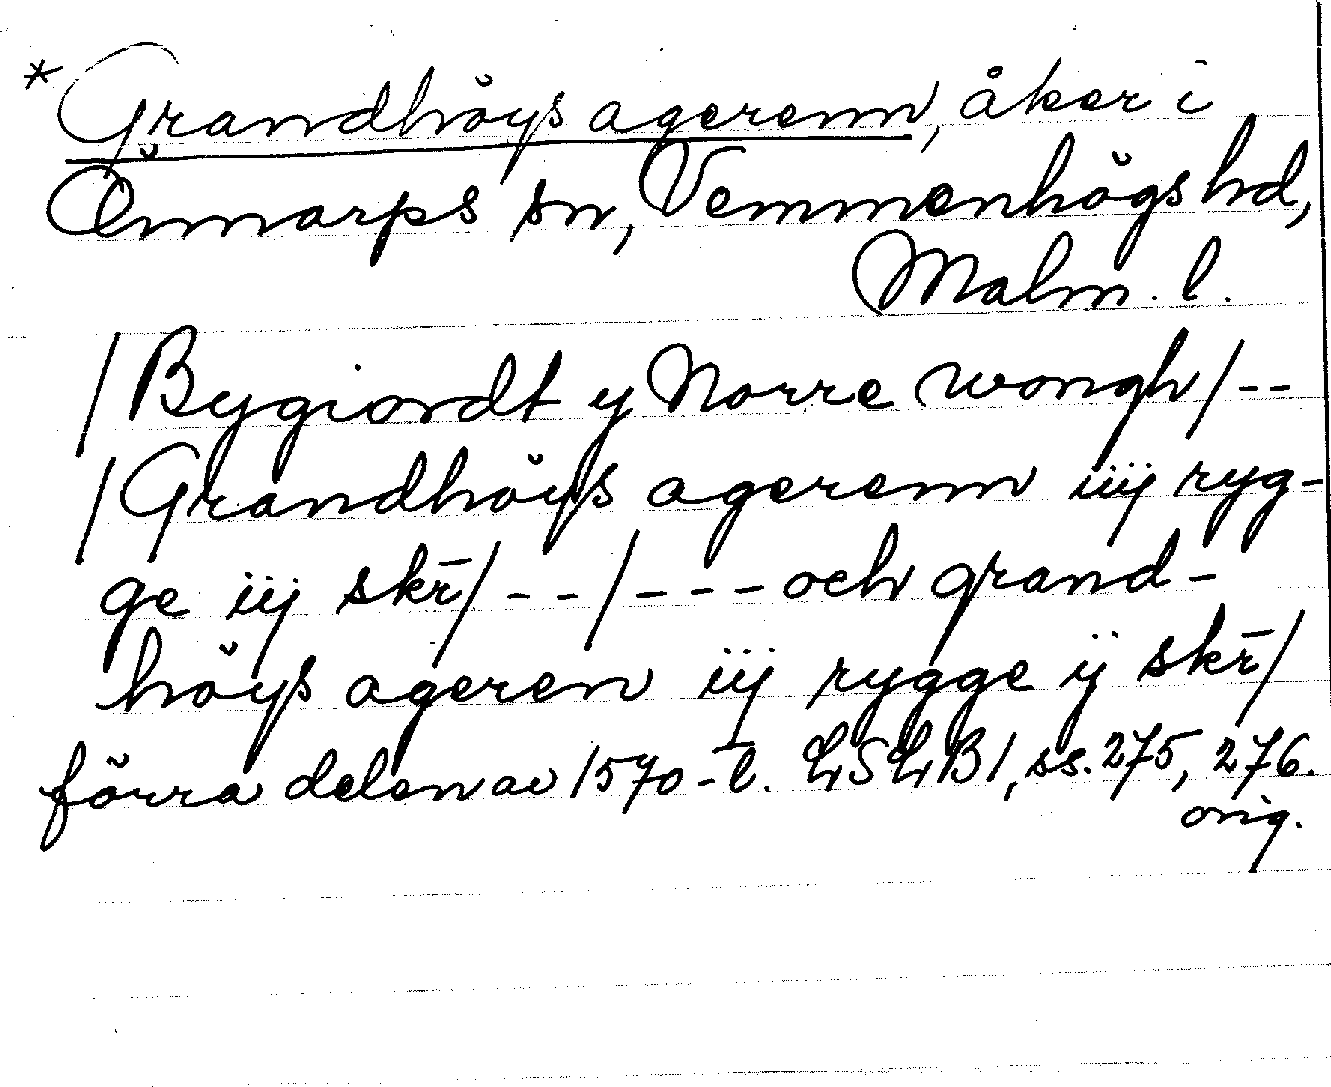 * Grandhöys agerenn, åker i
Önnarps sn, Vemmenhögs hd,
Malm. l.
/Bygiordt y Norre wongh/--
/Grandhöyſs agerenn iiij ryg-
ge iij skr̄/--/---och grand-
höyſs ageren iij rygge ij skr̄/
förra delen av 1570-t. LSLB1, ss. 275, 276.
orig.